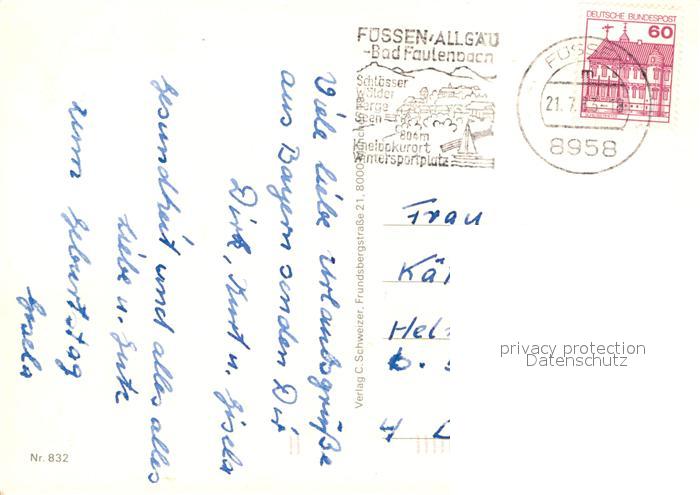 FÜSSEN/ALLGÄU
-Bad Faulenbach
Schlösser
Wälder
Berge
Seen
804m
Kneippkurort
Wintersportplatz
FÜSS
m
21.7.
a
8958
DEUTSCHE BUNDESPOST
60
Viele liebe Urlaubsgrüße
aus Bayern senden Dir
Dirk, Kurt u. Gisela
Gesundheit und alles alles
Liebe u. Gute
zum Geburtstag
Gisela
Verlag C. Schweizer, Frundsbergstraße 21, 8000
Frau
Kä
Hel
b.
4
privacy protection
Datenschutz
Nr. 832